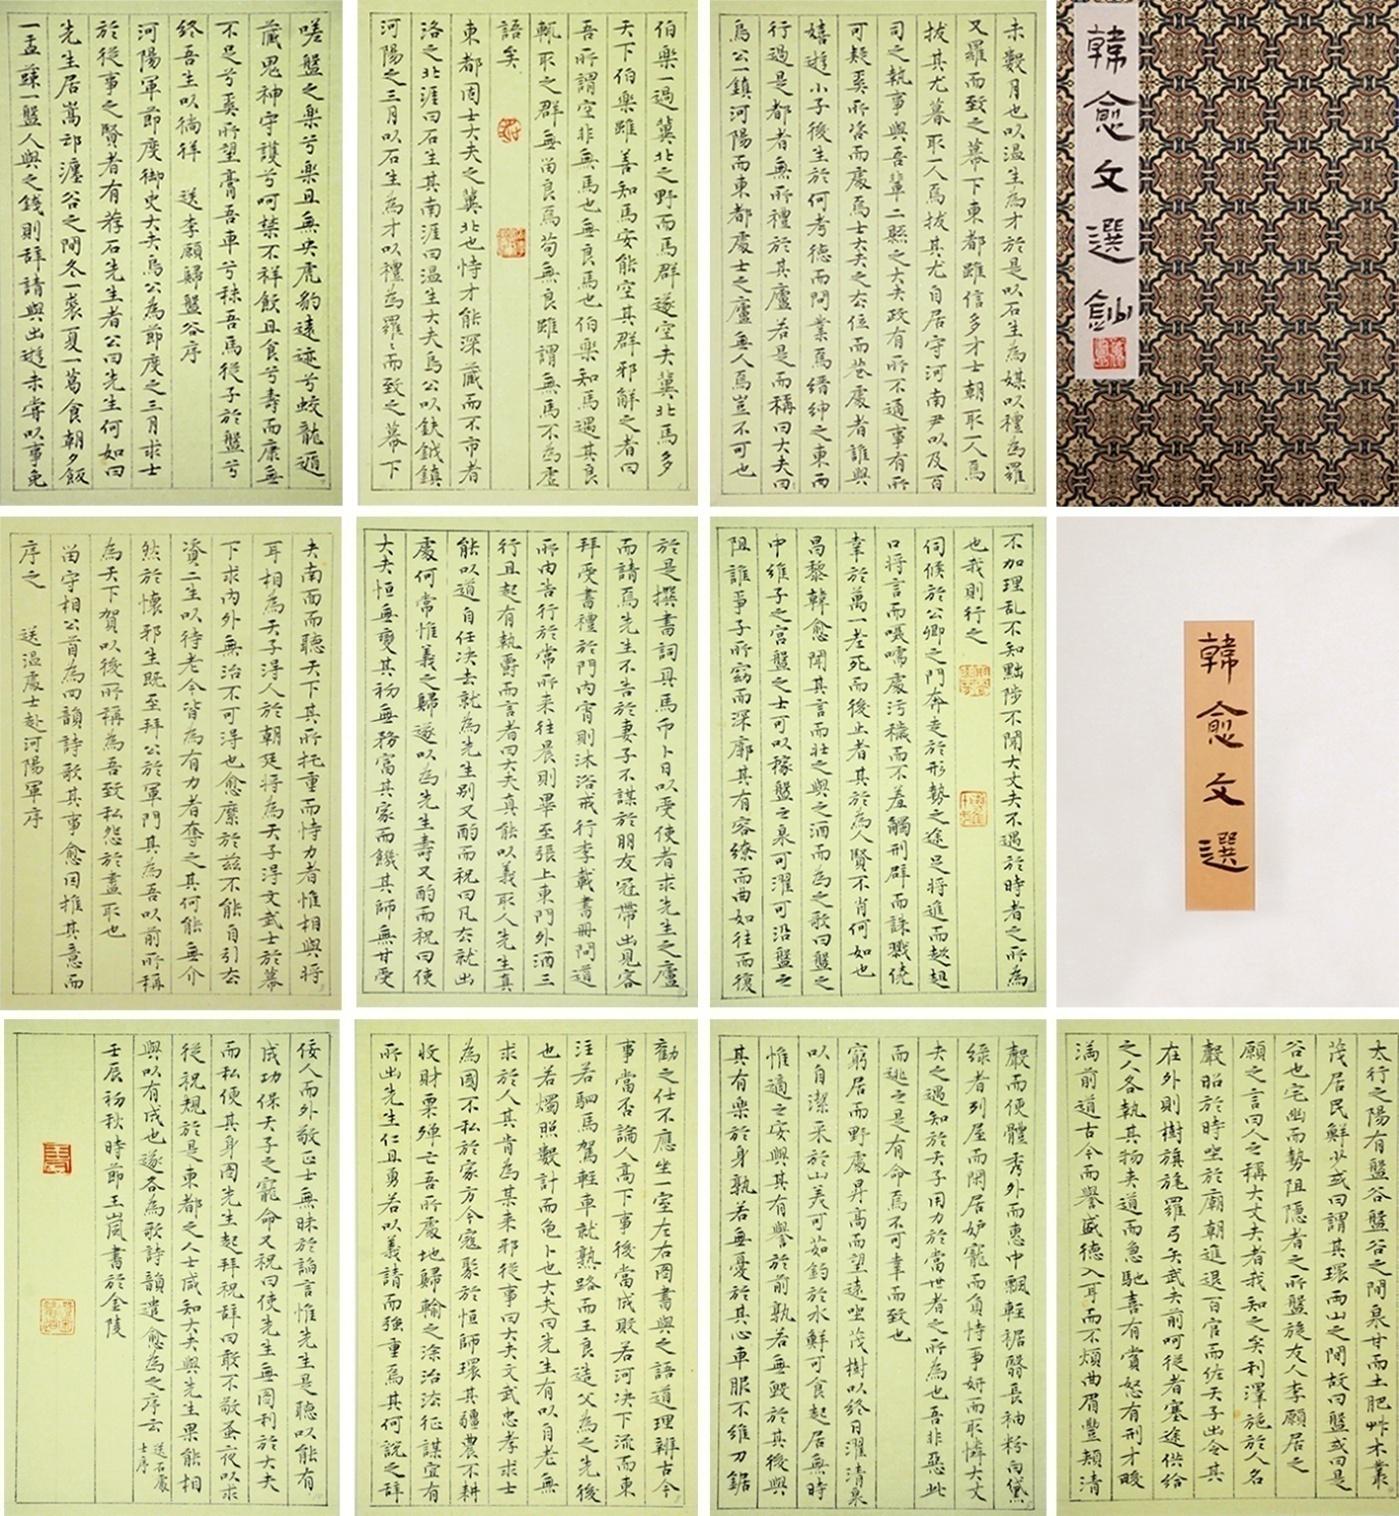 韓愈文選鈔
韓愈文選
太行之陽有盤谷盤谷之間泉甘而土肥艸木叢
茂居民鮮少或曰謂其環兩山之間故曰盤或曰是
谷也宅幽而勢阻隱者之所盤旋友人李願居之
願之言曰人之稱大丈夫者我知之矣利澤施於人名
聲昭於時坐於廟朝進退百官而佐天子出令其
在外則樹旗旄羅弓矢武夫前呵從者塞途供給
之人各執其物夾道而急馳喜有賞怒有刑才畯
滿前道古今而譽盛德入耳而不煩曲眉豐頰清
聲而便體秀外而惠中飄輕裾翳長袖粉白黛
綠者列屋而閑居妒寵而負恃爭妍而取憐大丈
夫之遇知於天子用力於當世者之所為也吾非惡此
而逃之是有命焉不可幸而致也
窮居而野處昇高而望遠坐茂樹以終日濯清泉
以自潔采於山美可茹釣於水鮮可食起居無時
惟適之安與其有譽於前孰若無毀於其後與
其有樂於身孰若無憂於其心車服不維刀鋸
不加理乱不知黜陟不聞大丈夫不遇於時者之所為
也我則行之
伺候於公卿之門奔走於形勢之途足將進而趑趄
口將言而囁嚅處污穢而不羞觸刑辟而誅戮僥
幸於萬一老死而後止者其於為人賢不肖何如也
昌黎韓愈聞其言而壯之與之酒而為之歌曰盤之
中維子之宮盤之土可以稼盤之泉可濯可沿盤之
阻誰爭子所窈而深廓其有容繚而曲如往而復
嗟盤之樂兮樂且無央虎豹遠迹兮蛟龍遁
藏鬼神守護兮呵禁不祥飲且食兮壽而康無
不足兮奚所望膏吾車兮秣吾馬從子於盤兮
終吾生以徜徉 送李願歸盤谷序
河陽軍節度御史大夫烏公為節度之三月求士
於從事之賢者有荐石先生者公曰先生何如曰
先生居嵩邙瀍谷之間冬一裘夏一葛食朝夕飯
一盂蔬一盤人與之錢則辭請與出遊未嘗以事免
勸之仕不應坐一室左右圖書與之語道理辨古今
事當否論人高下事後當成敗若河决下流而東
注若駟馬駕輕車就熟路而王良造父為之先後
也若燭照數計而龜卜也大夫曰先生有以自老無
求於人其肯為某来邪從事曰大夫文武忠孝求士
為國不私於家方今寇聚於恒師環其疆農不耕
收財粟殫亡吾所處地歸輸之涂治法征謀宜有
所出先生仁且勇若以義請而強重焉其何說之辭
於是撰書詞具馬币卜日以受使者求先生之廬
而請焉先生不告於妻子不謀於朋友冠帶出見客
拜受書禮於門內宵則沐浴戒行李載書冊問道
所由告行於常所来往晨則畢至張上東門外酒三
行且起有執爵而言者曰大夫真能以義取人先生真
能以道自任决去就為先生別又酌而祝曰凡去就出
處何常惟義之歸遂以為先生壽又酌而祝曰使
大夫恒無變其初無務富其家而饑其師無甘受
佞人而外敬正士無昧於諂言惟先生是聽以能有
成功保天子之寵命又祝曰使先生無圖利於大夫
而私便其身圖先生起拜祝辭曰敢不敬蚤夜以求
從祝規於是東都之人士咸知大夫與先生果能相
與以有成也遂各為歌詩韻遣愈為之序云 送石處士序
壬辰初秋時節王嵐書於金陵
伯樂一過冀北之野而馬群遂空夫冀北馬多
天下伯樂雖善知馬安能空其群邪解之者曰
吾所謂空非無馬也無良馬也伯樂知馬遇其良
輒取之群無留良焉苟無良雖謂無馬不為虛
語矣
東都固士大夫之冀北也恃才能深藏而不市者
洛之北涯曰石生其南涯曰溫生大夫烏公以鈇鉞鎮
河陽之三月以石生為才以禮為羅羅而致之幕下
未數月也以溫生為才於是以石生為媒以禮為羅
又羅而致之幕下東都雖信多才士朝取一人焉
拔其尤暮取一人焉拔其尤自居守河南尹以及百
司之執事與吾輩二縣之大夫政有所不通事有所
可疑奚所咨而處焉士大夫之去位而巷處者誰與
嬉遊小子後生於何考德而問業焉縉紳之東西
行過是都者無所禮於其廬若是而稱曰大夫
烏公一鎮河陽而東都處士之廬無人焉豈不可也
夫南面而聽天下其所托重而恃力者惟相與將
耳相為天子得人於朝廷將為天子得文武士於幕
下求內外無治不可得也愈縻於茲不能自引去
資二生以待老今皆為有力者奪之其何能無介
然於懷邪生既至拜公於軍門其為吾以前所稱
為天下賀以後所稱為吾致私怨於盡取也
留守相公首為四韻詩歌其事愈因推其意而
序之 送溫處士赴河陽軍序